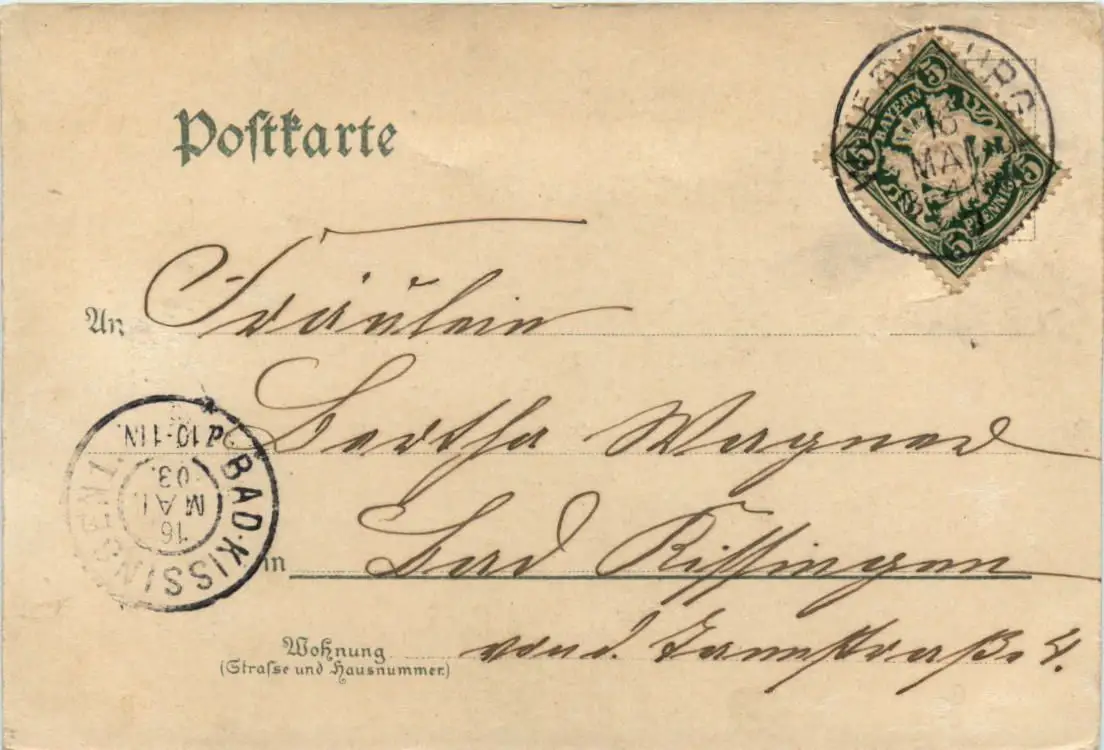 Postkarte
BAYERN
5 5 5 5
PFENNIG
16
MAI
An Fräulein
Bertha Wagner
in Bad Kissingen
Wohnung
(Strasse und Hausnummer.)
vord. Lannstraße 4.
BAD·KISSINGEN 1.
16
MAI
03.
10-11N.